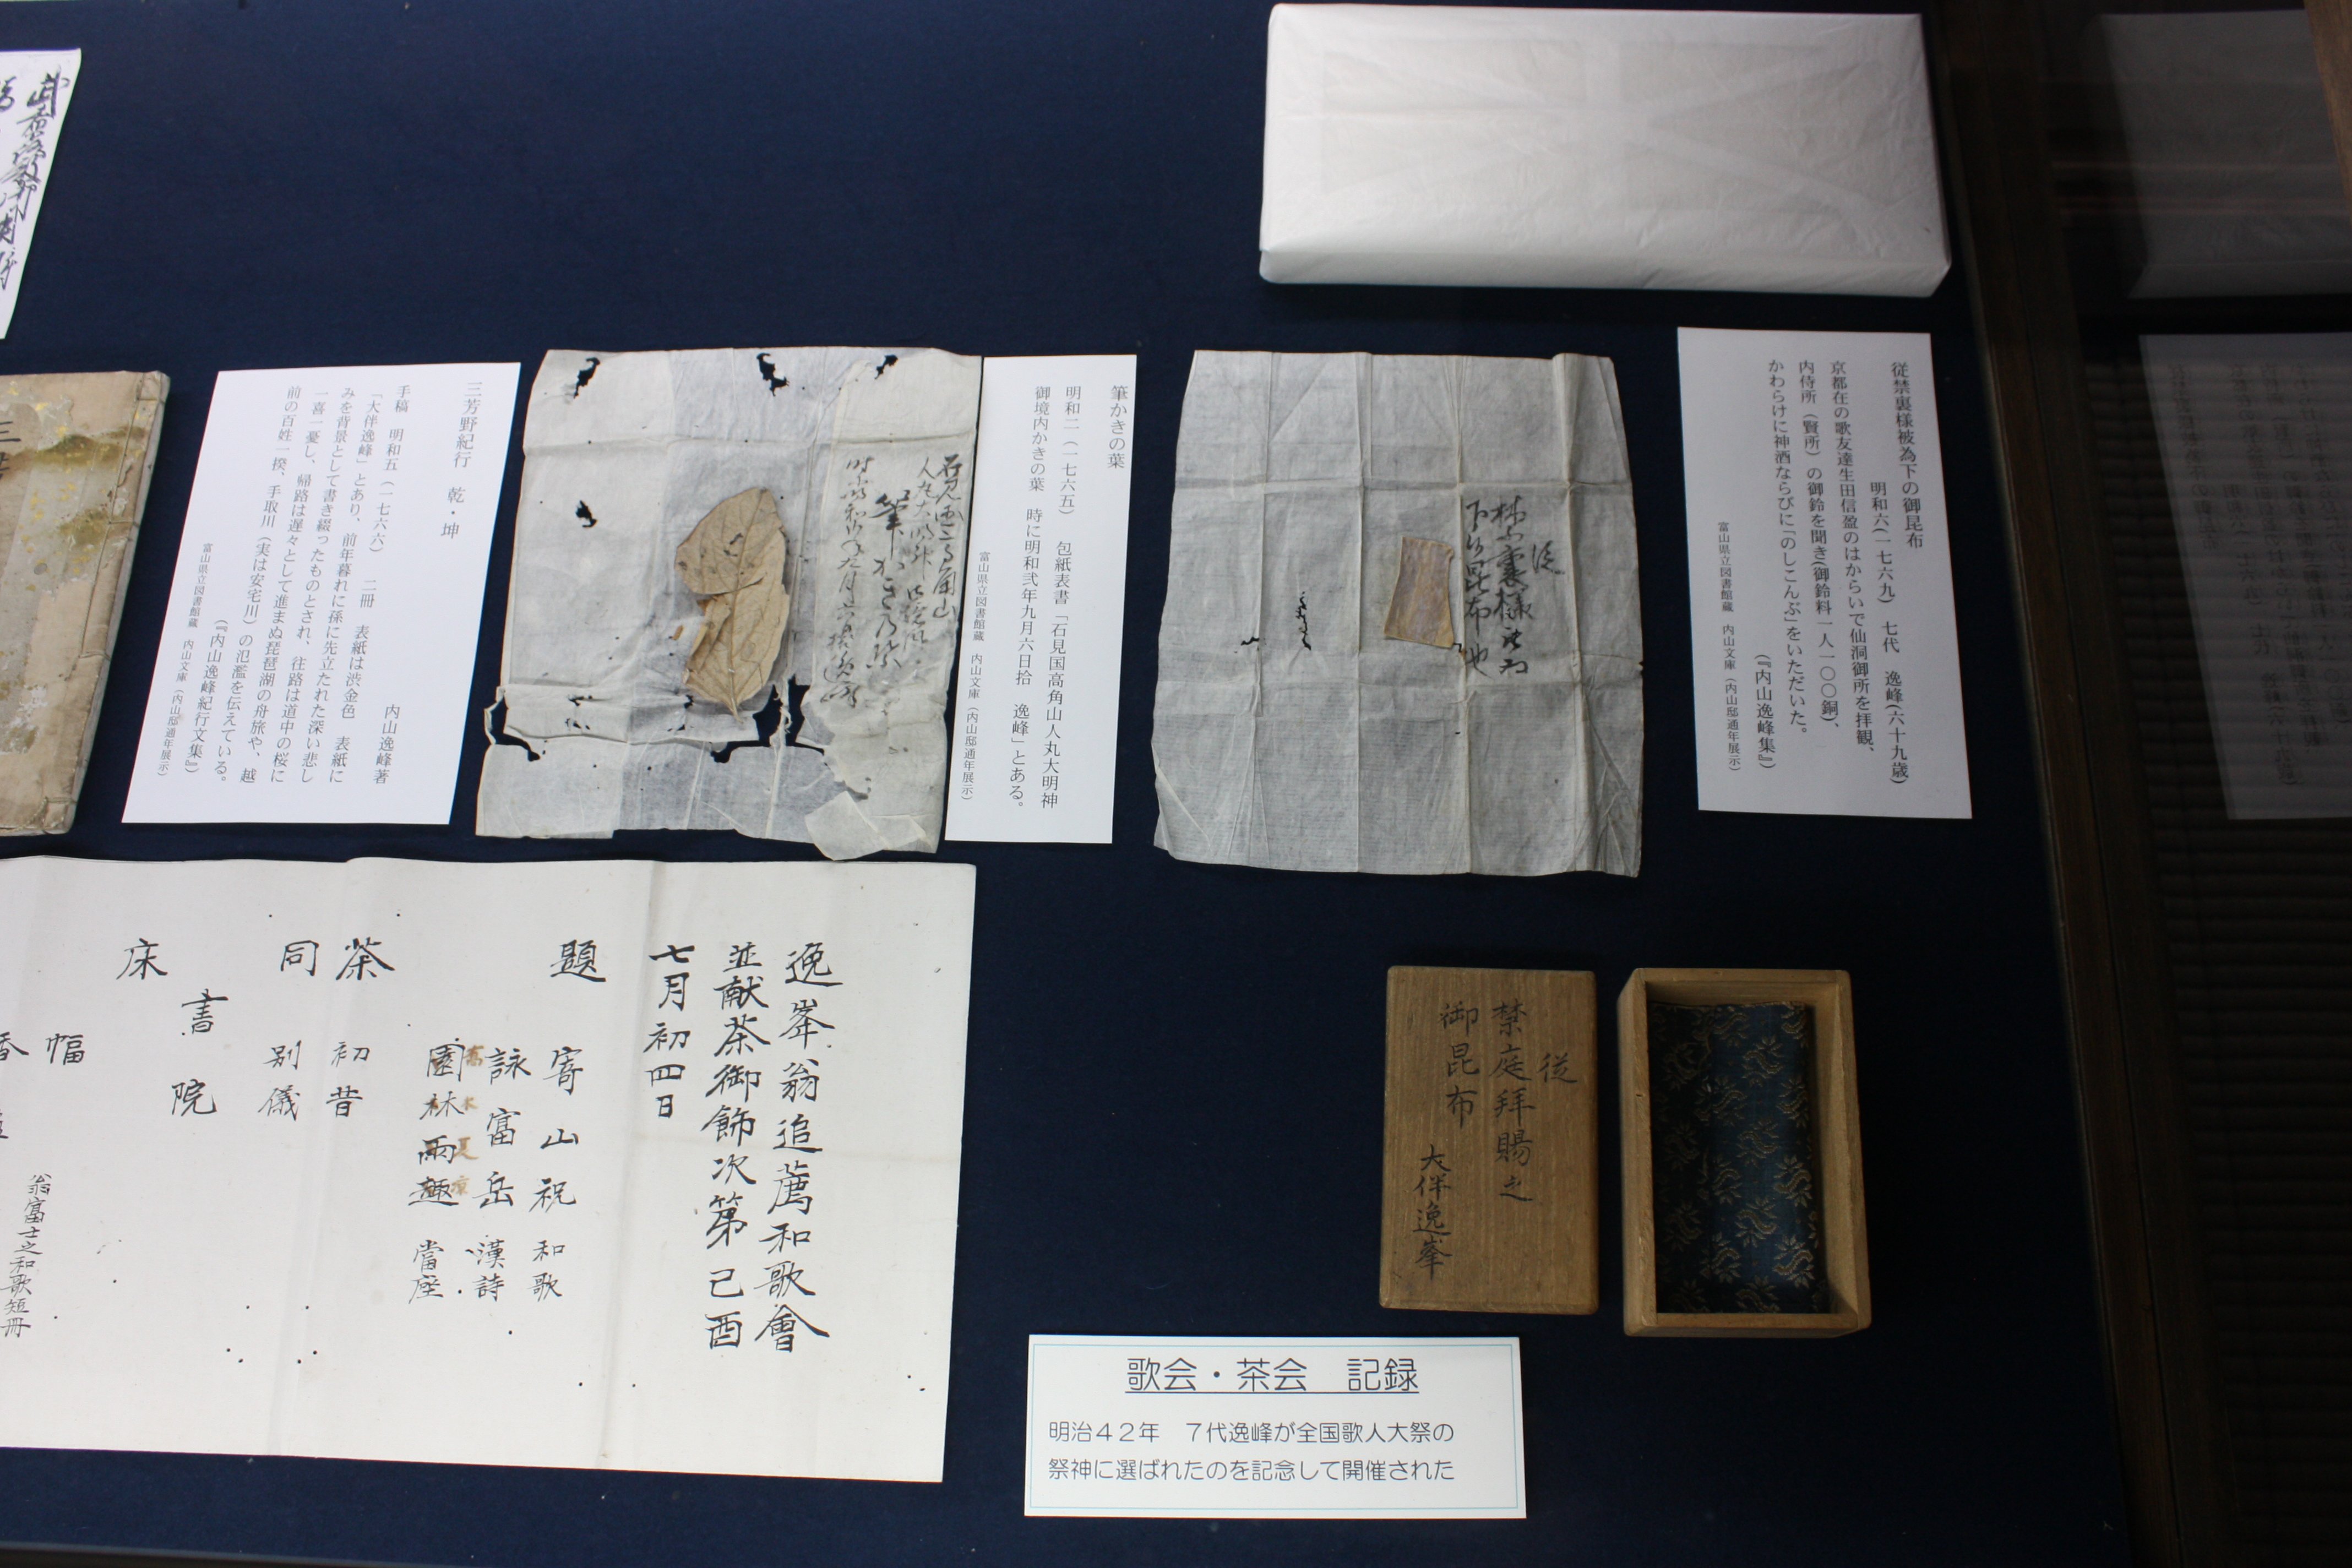 従禁裏様被為下の御昆布
明和六(一七六九) 七代 逸峰(六十九歳)
京都在の歌友達生田信盈のはからいで仙洞御所を拝観、
内侍所(賢所)の御鈴を聞き(御鈴料一人一〇〇銅)、
かわらけに神酒ならびに「のしこんぶ」をいただいた。
(『内山逸峰集』)
富山県立図書館蔵 内山文庫(内山邸通年展示)
従
禁裏様被為
下候昆布也
筆かきの葉
明和二(一七六五) 包紙表書「石見国高角山人丸大明神
御境内かきの葉 時に明和弐年九月六日拾 逸峰」とある。
富山県立図書館蔵 内山文庫(内山邸通年展示)
石見国高角山
人丸大明神 御境内
筆かきの葉
時明和弐年九月六日拾逸峰
三芳野紀行 乾・坤
内山逸峰著
手稿 明和五(一七六六) 二冊 表紙は渋金色 表紙に
「大伴逸峰」とあり、前年暮れに孫に先立たれた深い悲し
みを背景として書き綴ったものとされ、往路は道中の桜に
一喜一憂し、帰路は遅々として進まぬ琵琶湖の舟旅や、越
前の百姓一揆、手取川(実は安宅川)の氾濫を伝えている。
(『内山逸峰紀行文集』)
富山県立図書館蔵 内山文庫(内山邸通年展示)
三
従
禁庭拜賜之
御昆布
大伴逸峯
逸峯翁追薦和歌會
並献茶御飾次第己酉
七月初四日
題 寄山祝 和歌
詠富岳 漢詩
園林雨趣 當座
茶 初昔
同 別儀
書院
床
幅
翁富士之和歌短冊
香
歌会・茶会 記録
明治42年 7代逸峰が全国歌人大祭の
祭神に選ばれたのを記念して開催された